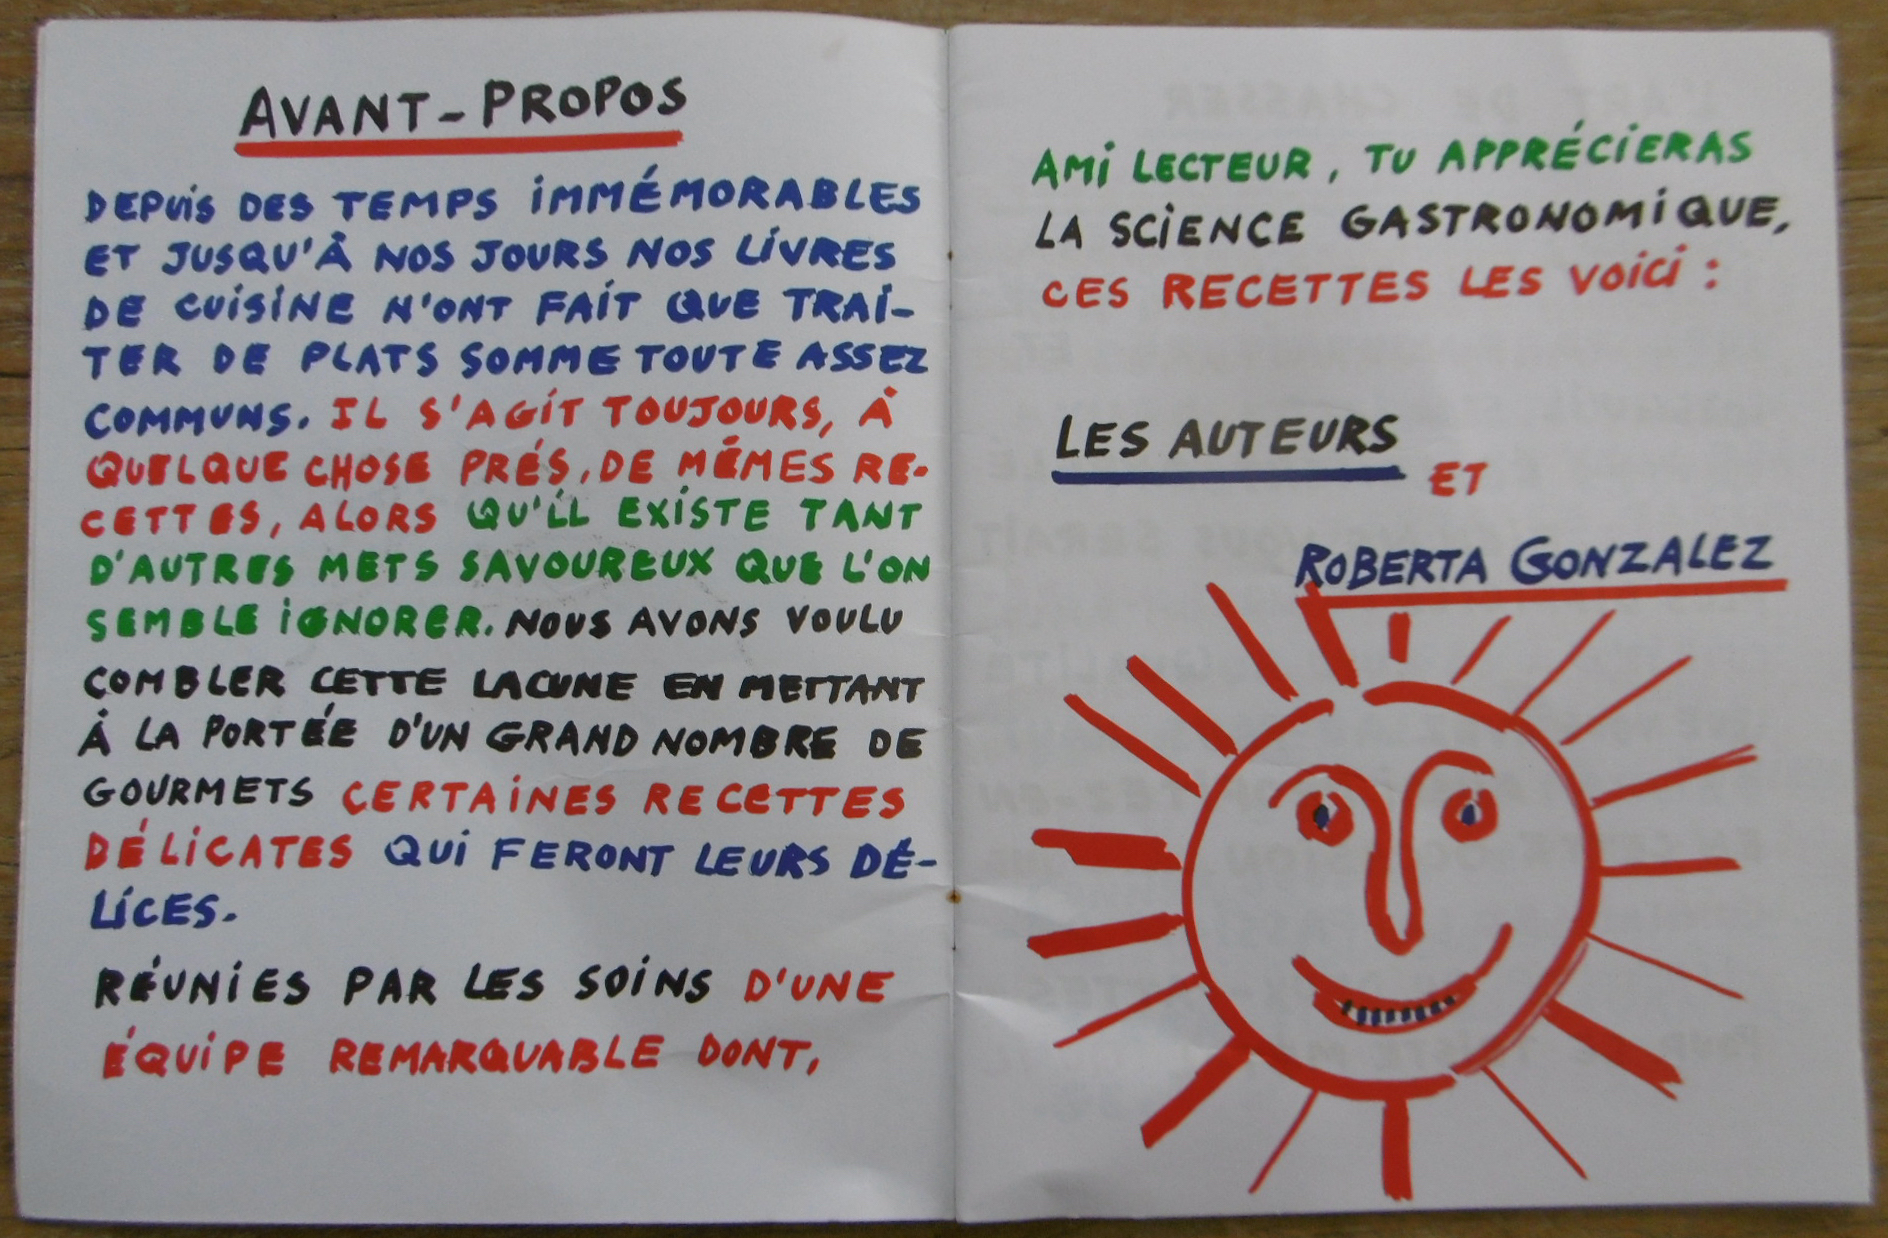 AVANT-PROPOS
DEPUIS DES TEMPS IMMÉMORABLES
ET JUSQU'À NOS JOURS NOS LIVRES
DE CUISINE N'ONT FAIT QUE TRAI-
TER DE PLATS SOMME TOUTE ASSEZ
COMMUNS. IL S'AGIT TOUJOURS, À
QUELQUE CHOSE PRÉS, DE MÉMES RE-
CETTES, ALORS QU'IL EXISTE TANT
D'AUTRES METS SAVOUREUX QUE L'ON
SEMBLE IGNORER. NOUS AVONS VOULU
COMBLER CETTE LACUNE EN METTANT
À LA PORTÉE D'UN GRAND NOMBRE DE
GOURMETS CERTAINES RECETTES
DÉLICATES QUI FERONT LEURS DÉ-
LICES.
RÉUNIES PAR LES SOINS D'UNE
ÉQUIPE REMARQUABLE DONT,
AMI LECTEUR, TU APPRÉCIERAS
LA SCIENCE GASTRONOMIQUE,
CES RECETTES LES VOICI :
LES AUTEURS
ET
ROBERTA GONZALEZ